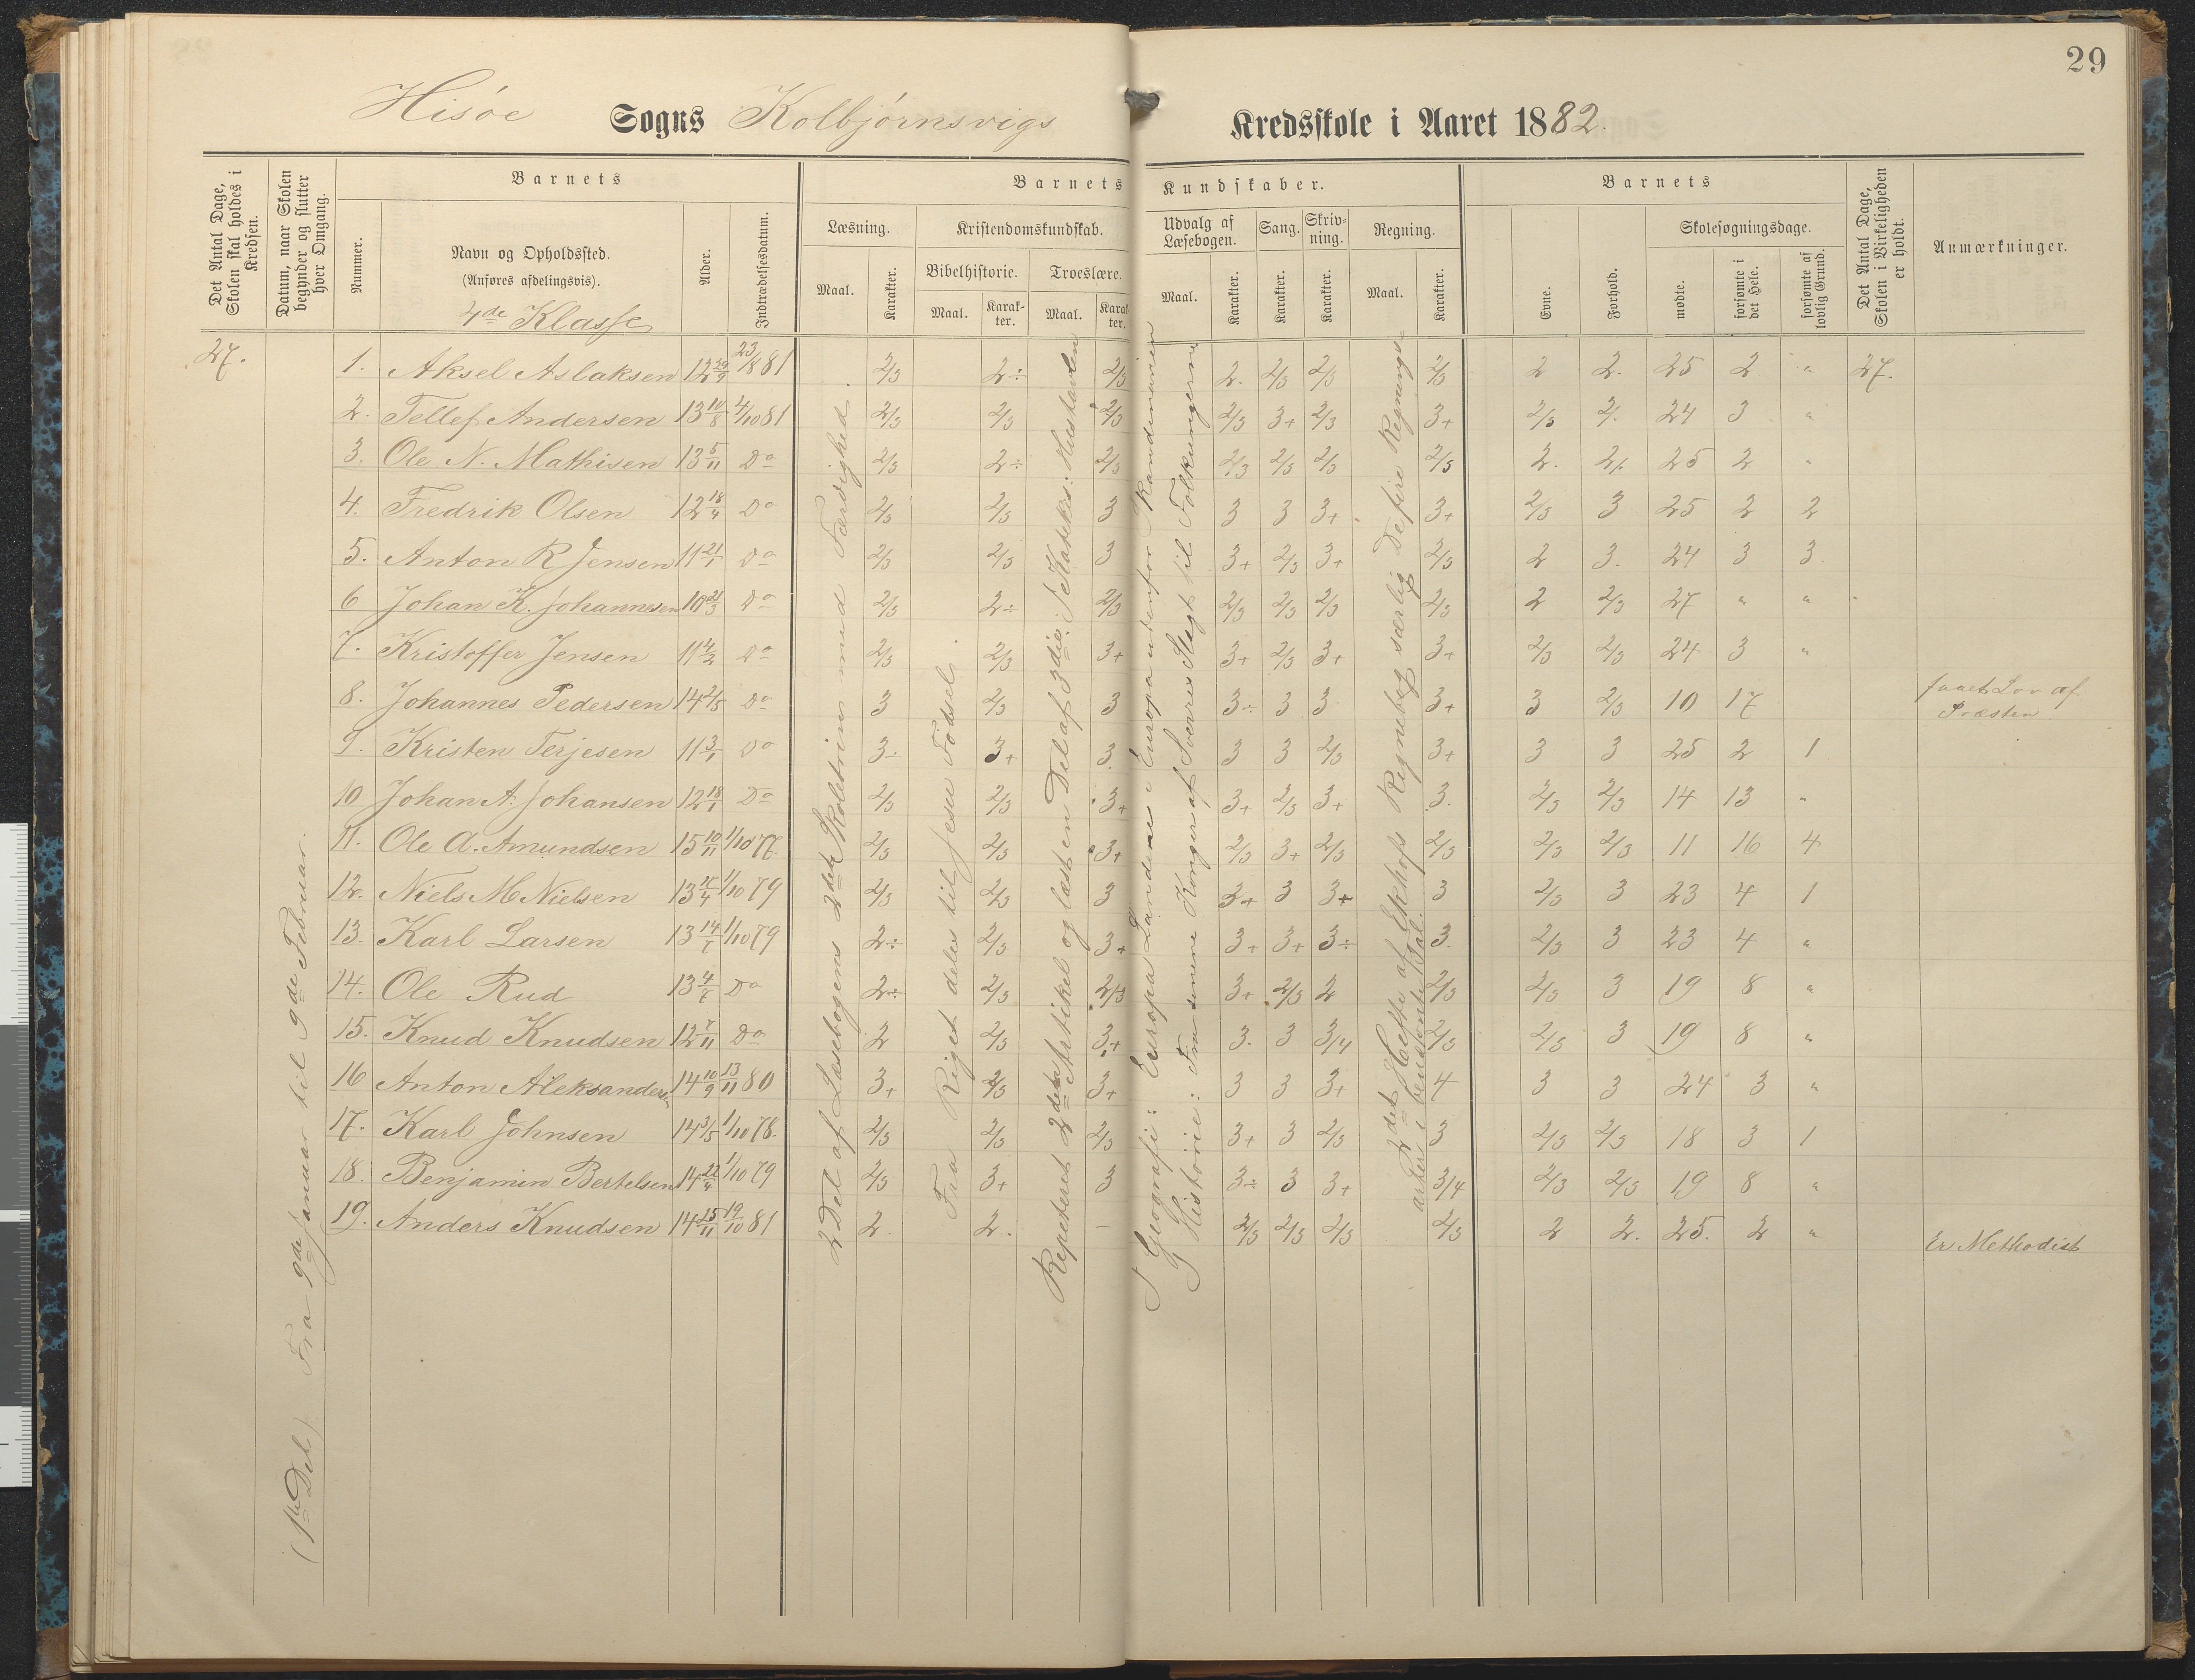 29
Hisøe Sogns Kolbjørnsvigs Kredsskole i Aaret 1882.
Det Antal Dage, Skolen skal holdes i Kredsen.
Datum, naar Skolen begynder og slutter hver Omgang.
Barnets
Nummer.
Navn og Opholdssted.
(Anføres afdelingsvis).
4de Klasse
Alder.
Indtrædelsesdatum.
Barnets Kundskaber.
Læsning.
Maal.
Karakter.
Kristendomskundskab.
Bibelhistorie.
Maal.
Karakter.
Troeslære.
Maal.
Karakter.
Udvalg af Læsebogen.
Maal.
Karakter.
Sang.
Karakter.
Skrivning.
Karakter.
Regning.
Maal.
Karakter.
Barnets
Evne.
Forhold.
Skolesøgningsdage.
mødte.
forsømte i det Hele.
forsømte af lovlig Grund.
Det Antal Dage, Skolen i Virkeligheden er holdt.
Anmærkninger.
27.
(1ste Del) Fra 9de Januar til 9de Februar.
2 Del af Læsebogens 2det Skoletrin med Færdighed.
Fra Riget deles til Jesu Fødsel
Repeteret 2den Artikel og læst en Del af 3die. / Katekis: Hustavlen
Geografi: Europa Landene i Europa udenfor Skandinavien
Historie: Fra denne Konger af Sverres Slegt til Folkungerne
2det Hefte af Ekhofs Regnebog særlig De fire Regningsarter i benævnte Tal.
1. Aksel Aslaksen 12 29/9 23/8 81 2/3 2÷ 2/3 2. 2/3 2/3 2/3 2 2. 25 2 " 27.
2. Tellef Andersen 13 10/8 4/10 81 2/3 2/3 2/3 2/3 3+ 2/3 3+ 2/3 2. 24 3 "
3. Ole N. Mathisen 13 5/11 Do 2/3 2÷ 2/3 2/3 2/3 2/3 2/3 2. 2. 25 2 "
4. Fredrik Olsen 12 18/4 Do 2/3 2/3 3 3 3 3+ 3+ 2/3 3 25 2 2
5. Anton R Jensen 11 21/1 Do 2/3 2/3 3 3+ 2/3 3+ 2/3 2 3. 24 3 3.
6 Johan K. Johannesen 10 21/3 Do 2/3 2÷ 2/3 2/3 2/3 2/3 2/3 2 2/3 27 " "
7. Kristoffer Jensen 11 4/2 Do 2/3 2/3 3+ 3+ 2/3 3+ 3+ 2/3 2/3 24 3 "
8. Johannes Pedersen 14 2/5 Do 3 2/3 3 3÷ 3 3 3+ 3 2/3 10 17 faaet Lov af Præsten
9. Kristen Terjesen 11 3/1 Do 3÷ 3+ 3. 3 3 2/3 3+ 3 3 25 2 1
10 Johan A. Johansen 12 18/1 Do 2/3 2/3 3+ 3+ 2/3 3+ 3. 2/3 2/3 14 13 "
11. Ole A. Amundsen 15 10/11 1/10 77. 2/3 2/3 3+ 2/3 3+ 2/3 2/3 2/3 2/3 11 16 4
12. Niels M Nielsen 13 17/4 1/10 79 2/3 2/3 3 3+ 3 3+ 3 2/3 3 23 4 1
13. Karl Larsen 13 14/7 1/10 79 2÷ 2/3 3+ 3+ 3+ 3÷ 3. 2/3 3 23 4 "
14. Ole Rud 13 4/7 Do 2÷ 2/3 2/3 3+ 2/3 2 2/3 2/3 3 19 8 "
15. Knud Knudsen 12 7/11 Do 2 2/3 3+ 3. 3 3/4 2/3 2/3 3 19 8 "
16 Anton Aleksanders. 14 10/9 13/11 80 3+ 2/3 3+ 3 3 3+ 4 3 3 24 3 "
17. Karl Johnsen 14 3/5 1/10 78. 2/3 2/3 2/3 3+ 3 2/3 3 2/3 2/3 18 3 1
18. Benjamin Bertelsen 14 22/4 1/10 79 2/3 3+ 3 3÷ 3 3+ 3/4 2/3 2/3 19 8 "
19. Anders Knudsen 14 15/11 19/10 81 2. 2. — 2/3 2/3 2/3 2/3 2 2. 25. 2 " Er Methodist